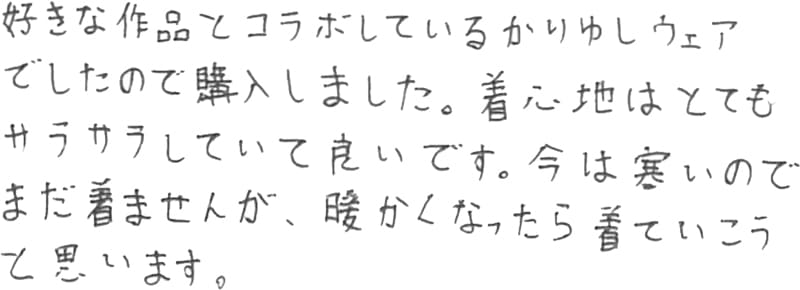 好きな作品とコラボしているかりゆしウェア
でしたので購入しました。着心地はとても
サラサラしていて良いです。今は寒いので
まだ着ませんが、暖かくなったら着ていこう
と思います。